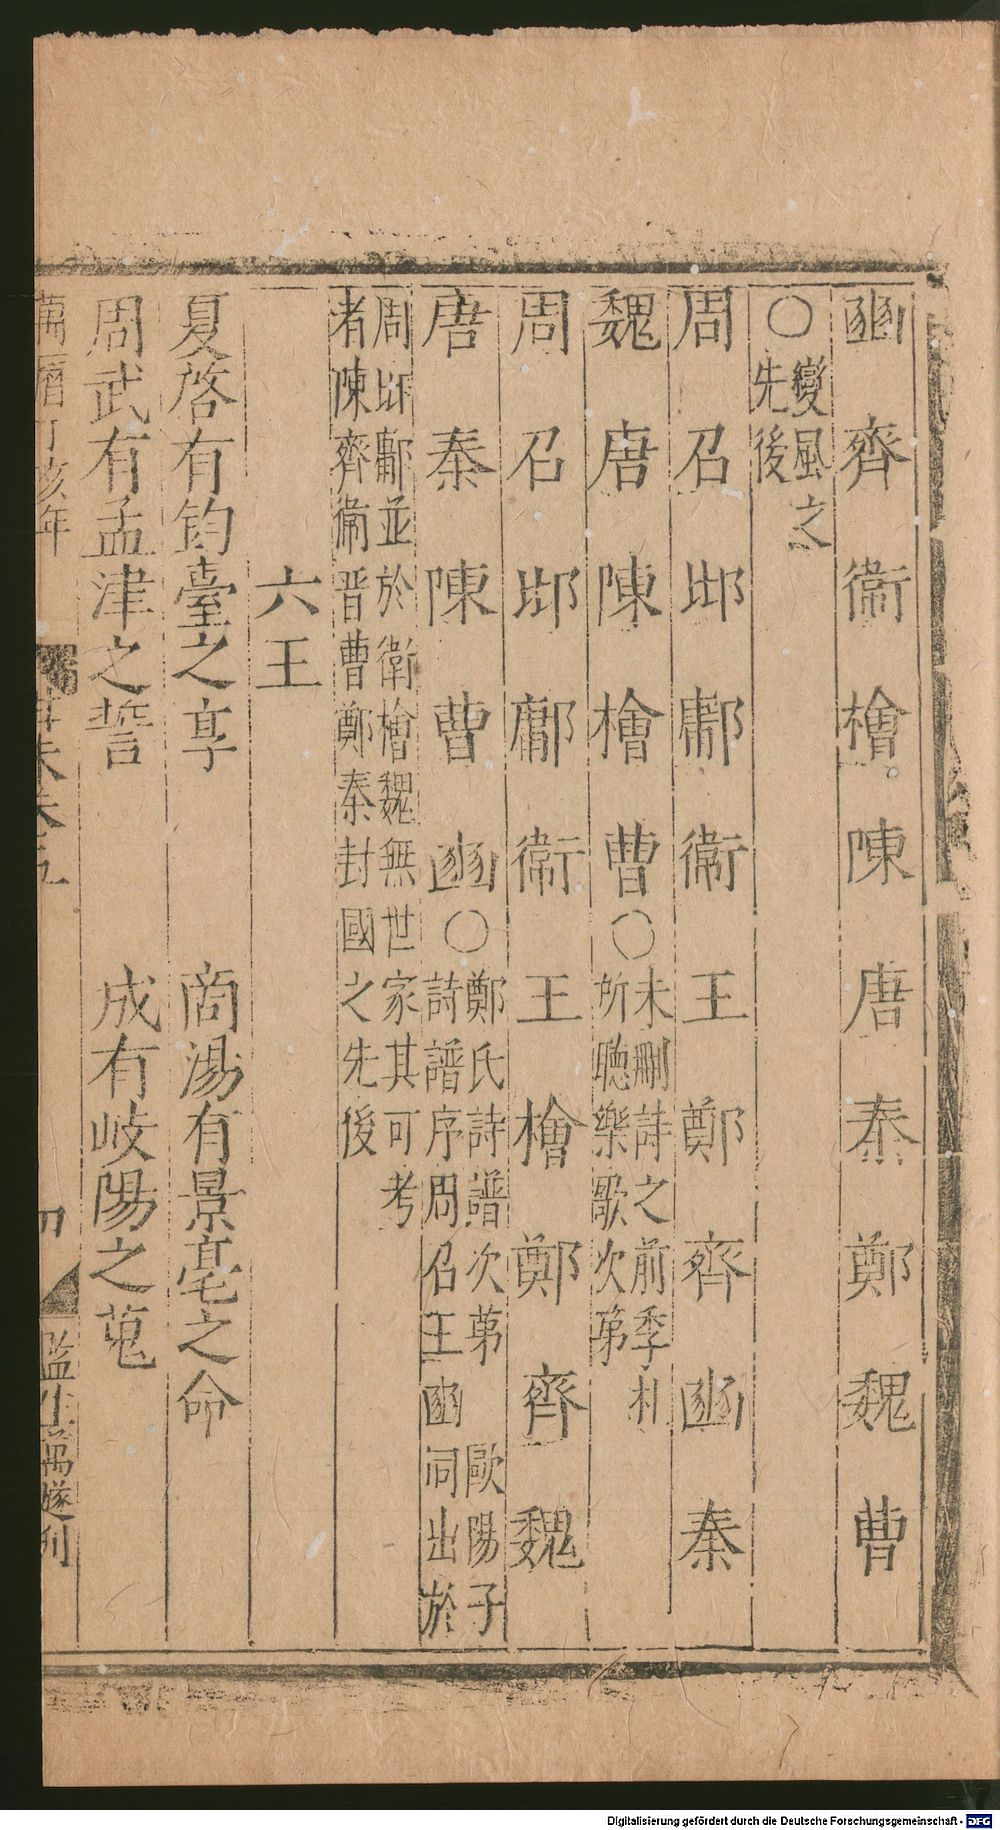 豳 齊 衞 檜 陳 唐 秦 鄭 魏 曹
○變風之
先後
周 召 邶 鄘 衞 王 鄭 齊 豳 秦
魏 唐 陳 檜 曹○未刪詩之前季札
所聽樂歌次第
周 召 邶 鄘 衞 王 檜 鄭 齊 魏
唐 秦 陳 曹 豳○鄭氏詩譜次第 歐陽子
詩譜序周召王豳同出於
周邶鄘並於衛檜魏無世家其可考
者陳齊衞晉曹鄭秦封國之先後
六王
夏啓有鈞臺之享 商湯有景亳之命
周武有孟津之誓 成有岐陽之蒐
萬曆丁亥年
四
監生萬遂刊
Digitalisierung gefördert durch die Deutsche Forschungsgemeinschaft - DFG